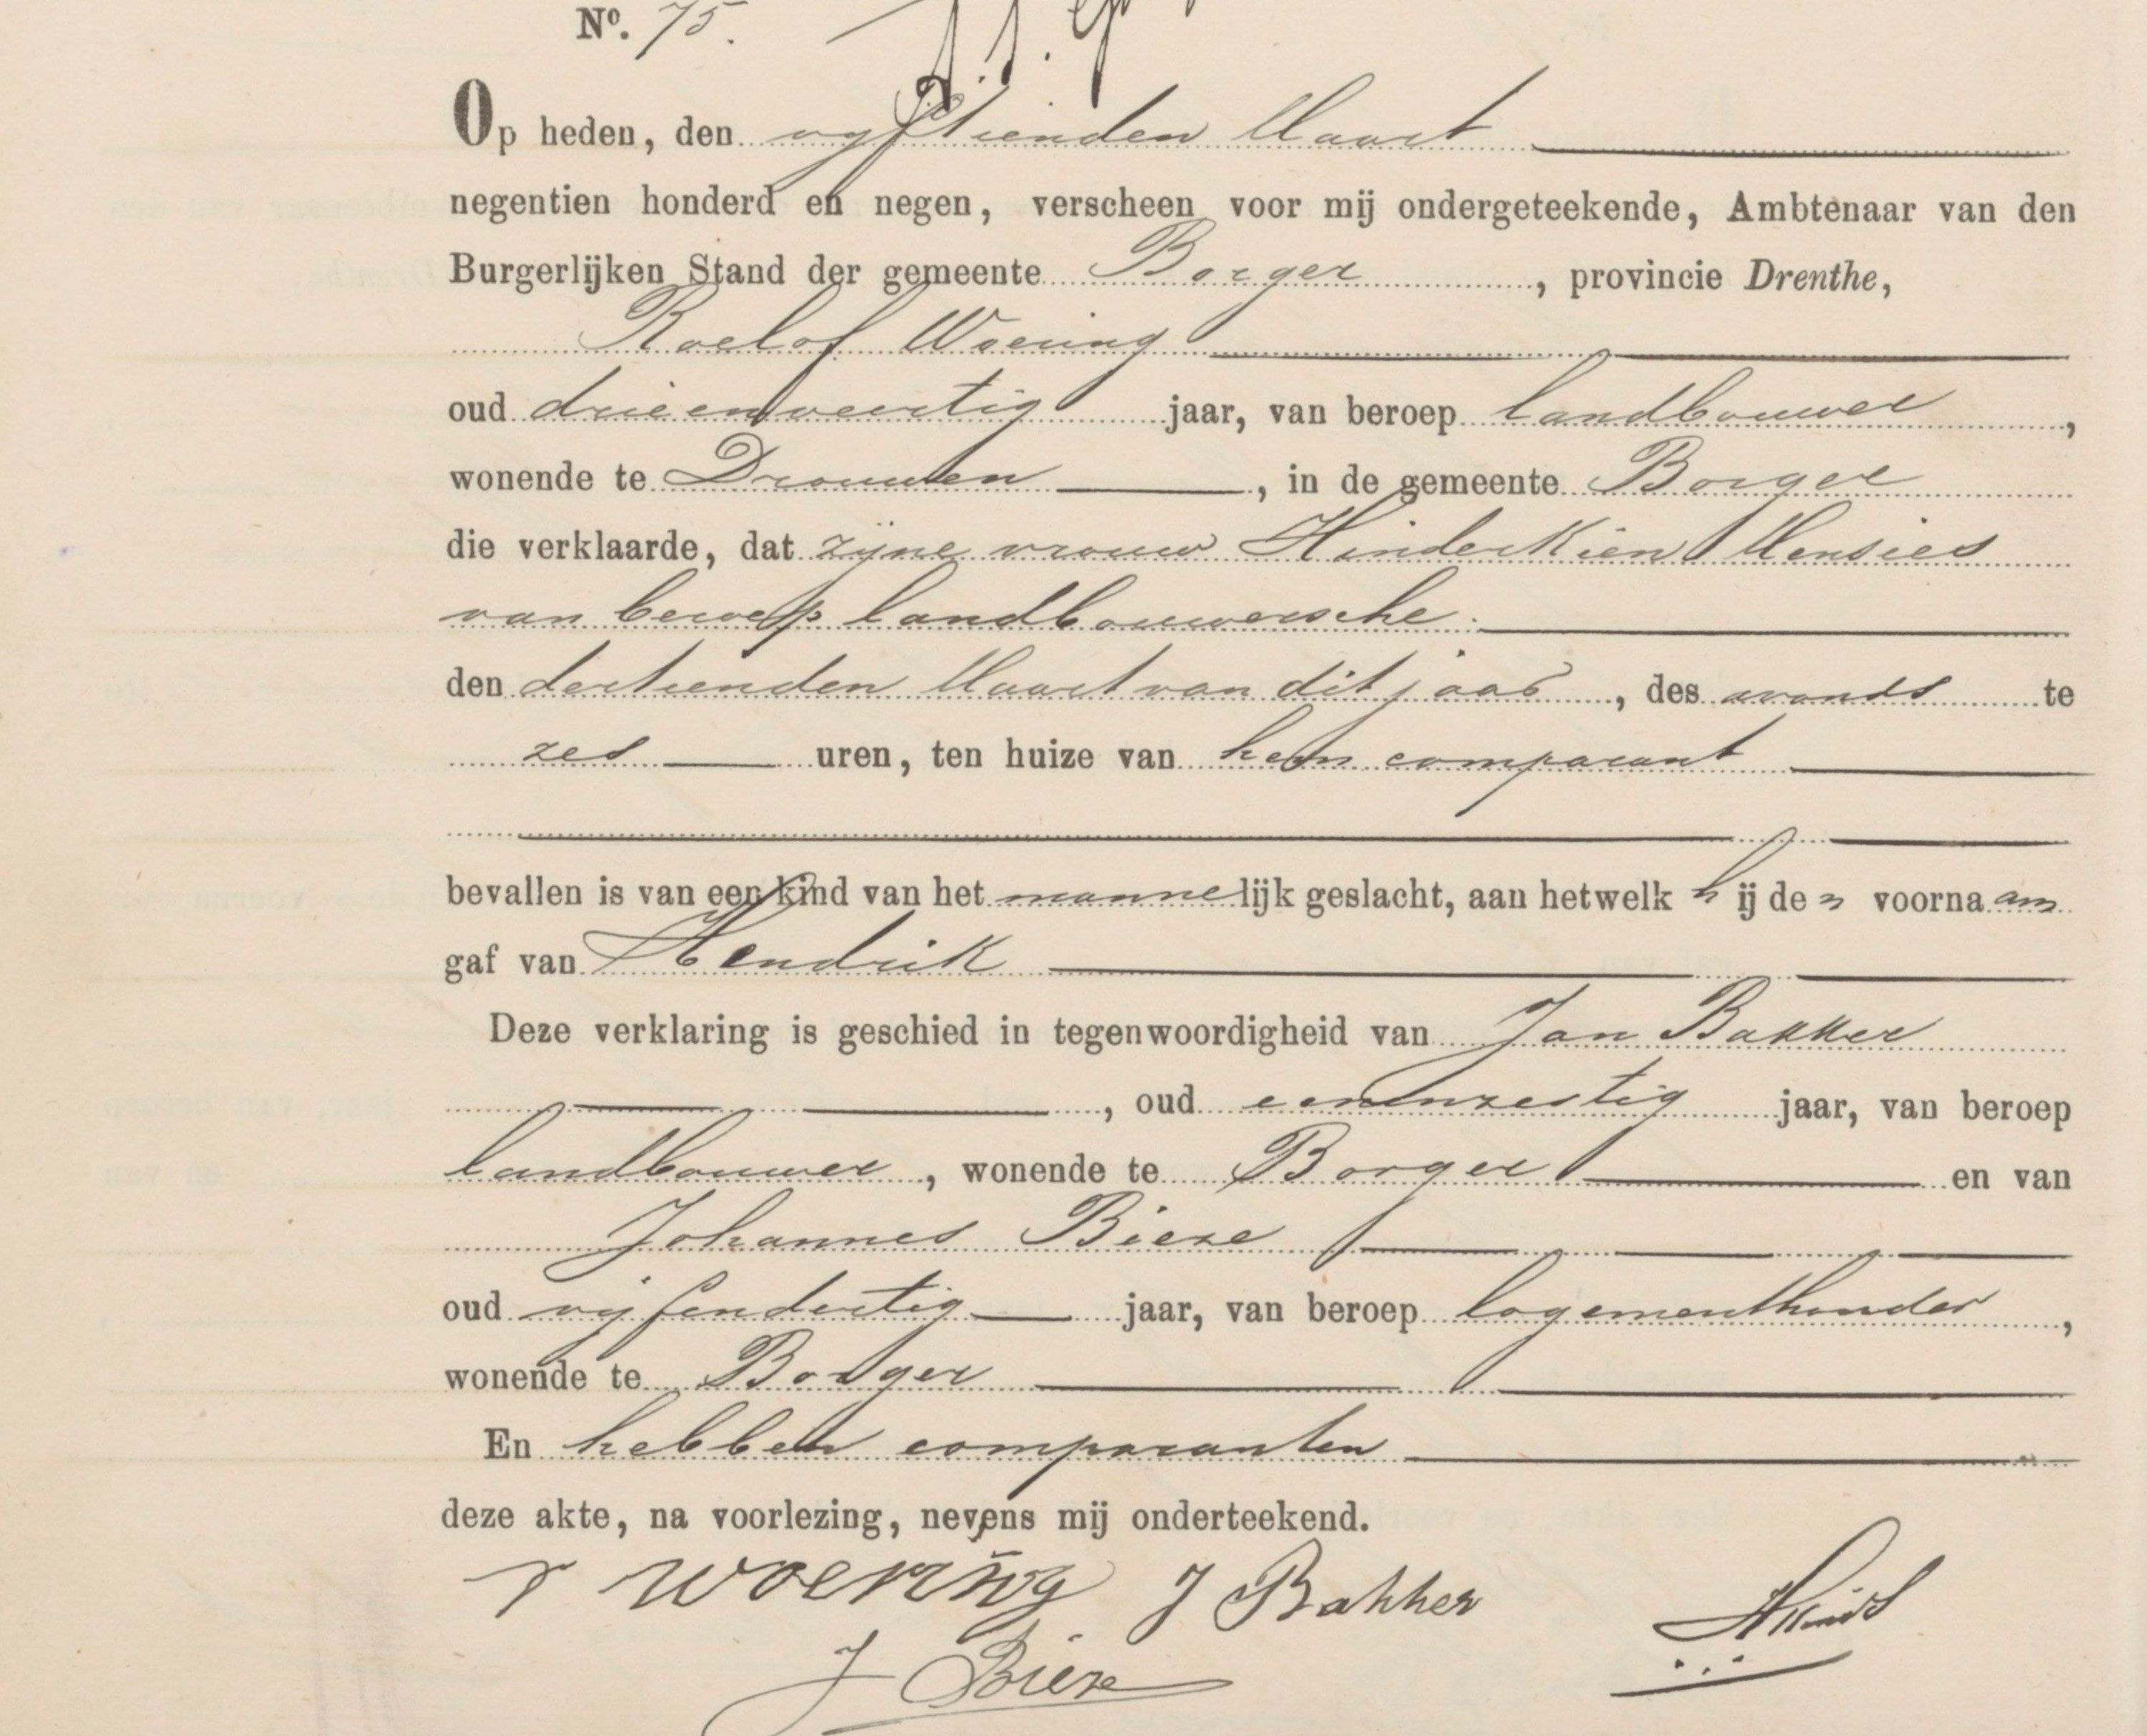 Nº. 75.
Op heden, den vyftienden Maart
negentien honderd en negen, verscheen voor mij ondergeteekende, Ambtenaar van den
Burgerlijken Stand der gemeente Borger, provincie Drenthe,
Roelof Woering
oud drieenveertig jaar, van beroep landbouwer,
wonende te Drouwen, in de gemeente Borger
die verklaarde, dat zijne vrouw Hinderkien Mensies
van beroep landbouwersche.
den dertienden Maart van dit jaar, des avonds te
zes uren, ten huize van hem comparant
bevallen is van een kind van het mannelijk geslacht, aan hetwelk hij den voornaam
gaf van Hendrik
Deze verklaring is geschied in tegenwoordigheid van Jan Bakker
, oud eenenzestig jaar, van beroep
landbouwer, wonende te Borger en van
Johannes Bieze
oud vijfendertig jaar, van beroep logementhouder,
wonende te Borger
En hebben comparanten
deze akte, na voorlezing, nevens mij onderteekend.
r woering J Bakker
J Bieze